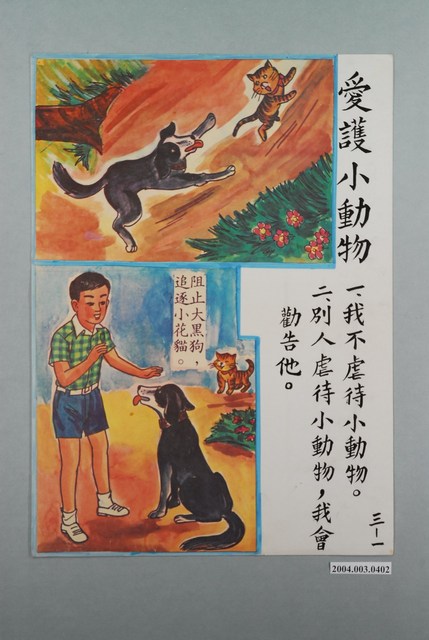 愛護小動物
一、我不虐待小動物。
二、別人虐待小動物，我會
勸告他。
阻止大黑狗，
追逐小花貓。
三－一
2004.003.0402